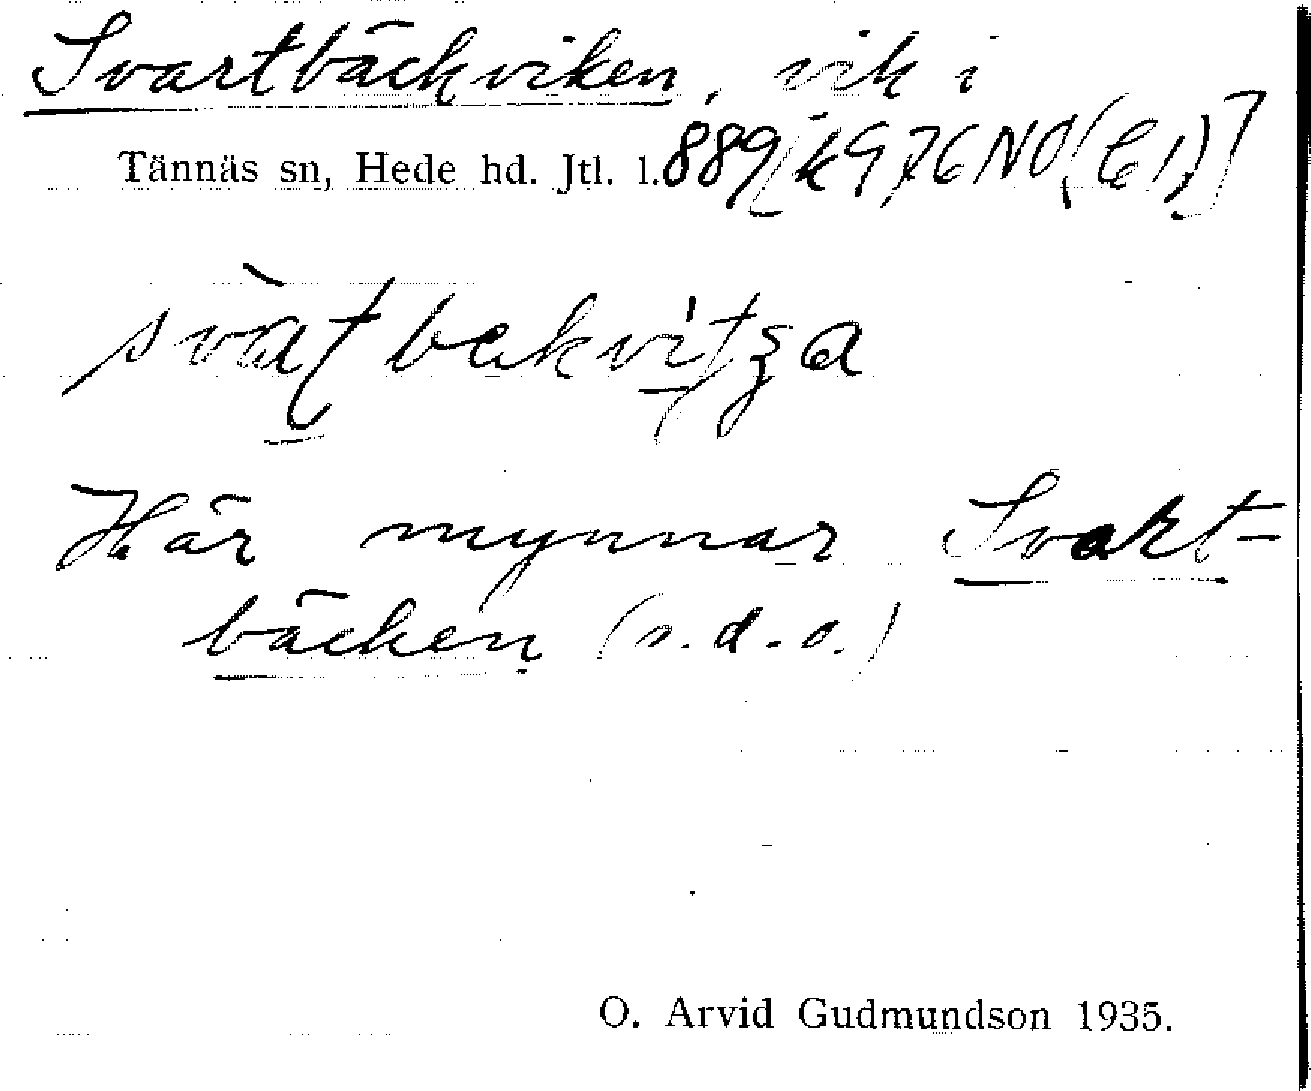 Svartbäckviken, vik i
Tännäs sn, Hede hd. Jtl. l. 889[k976NO(61)]
Här mynnar Svart-
bäcken (s.d.o.)
O. Arvid Gudmundson 1935.